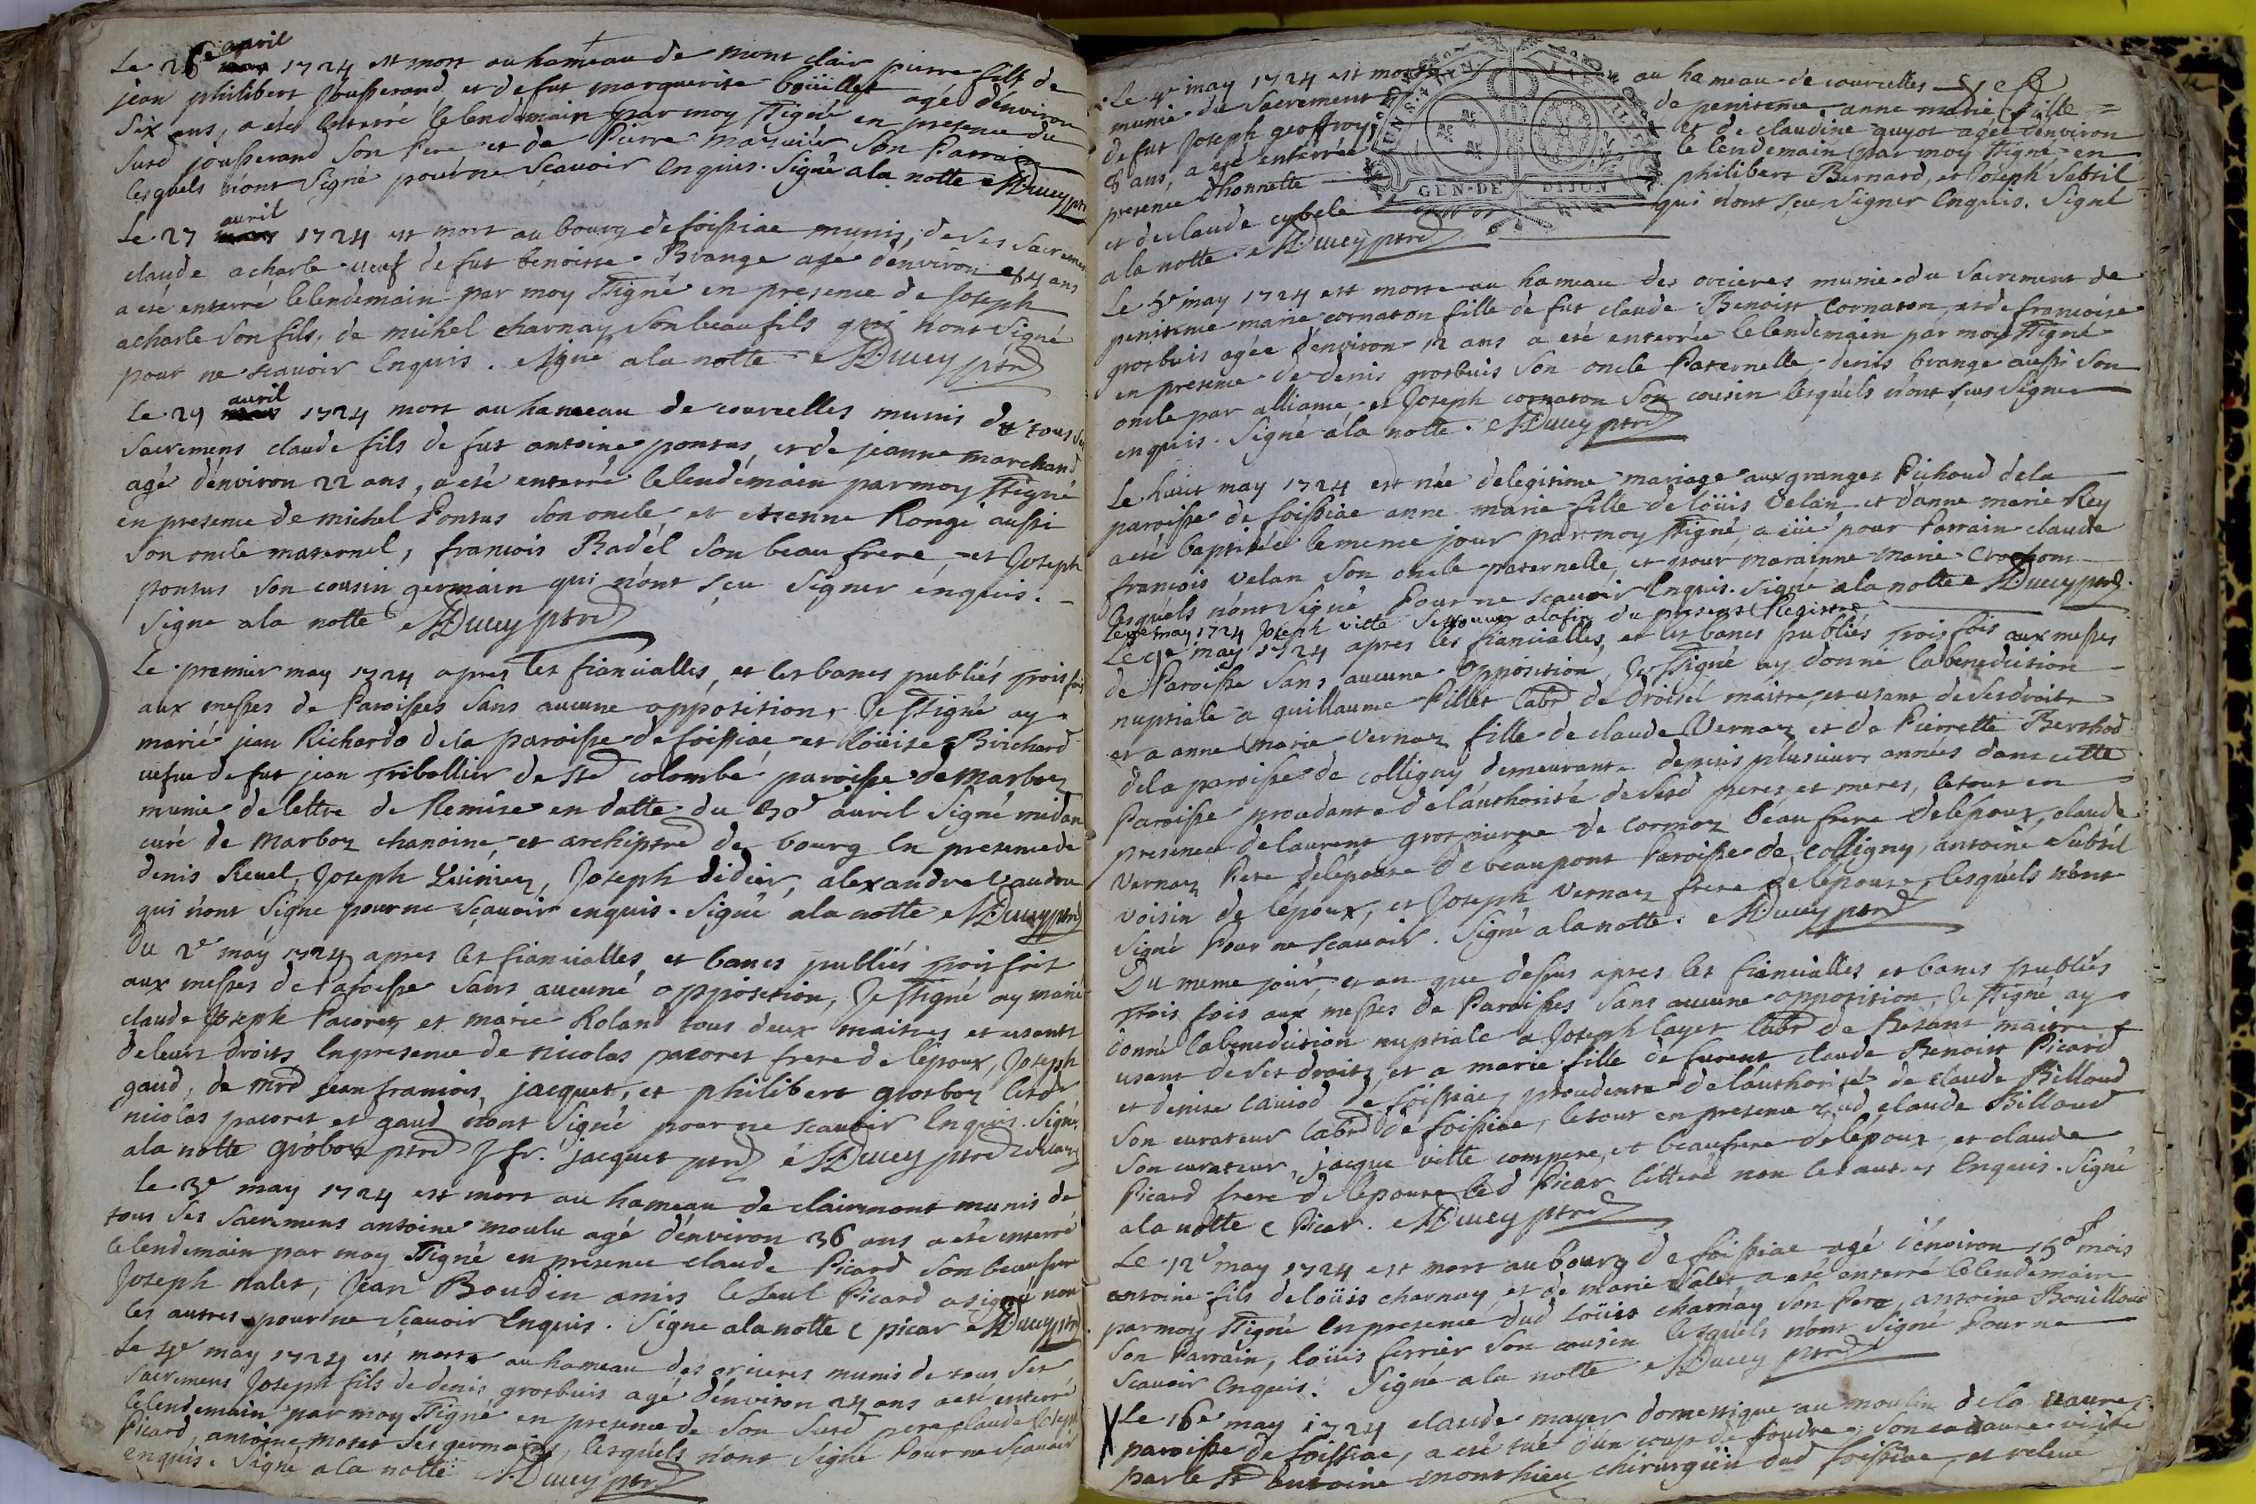 Le 26e avril 1724 est mort au hameau de mont clair pierre fils de
jean philibert Jousserand et de fut marguerite boüillet agé d'environ
six ans, a eté enterré le lendemain par moy ssigné en presence du
susd jousserand son Pere et de Pierre son Parrain
lesquels n'ont signé pour ne sçavoir enquis. signé a la notte MDucy ptre
Le 27 avril 1724 est mort au bourg de foissiac munis de ses sacremens
claude acharle veuf de fut benoitte Brange agé d'environ 84 ans
a eté enterré le lendemain par moy ssigné en presence de Joseph
acharle son fils, de michel charnay son beau fils qui n'ont signé
pour ne scavoir enquis. signé a la notte MDucy ptre
Le 29 avril 1724 mort au hameau de courcelles munis de tous ses
sacremens claude fils de fut antoine pontus, et de jeanne marchand
agé d'environ 22 ans, a eté enterré le lendemain par moy ssigné
en presence de michel Pontus son oncle et etienne Rongé aussi
son oncle maternel, francois Badél son beau frere, et Joseph
pontus son cousin germain qui n'ont sçu signer enquis.
signé a la notte MDucy ptre
Le premier may 1724 apres les fiancialles, et les bancs publiés trois fois
aux messes de Paroisses sans aucune opposition, Je ssigné ay
marié jean Richardo de la paroisse de foissiac et loüise Birchard
vefve de fut jean Tribollier de ste colombe paroisse de Marboz
munie de lettre de Remise en datte du 30e avril signé midan
curé de Marboz chanoine et archiptre de bourg en presence de
denis Revel, Joseph Livinez, Joseph didier, alexandre vaudon
qui n'ont signé pour ne sçavoir enquis. signé a la notte MDucy ptre
Du 2e may 1724 apres les fiancialles, et bancs publiés trois fois
aux messes de Paroisse sans aucune opposition, Je ssigné ay marié
claude Joseph Pacoret et marie Roland tous deux maitres et usants
de leurs droits en presence de nicolas pacoret frere de l'époux, Joseph
gaud, de mrd jean francois jacquet, et philibert grosboz lesd
nicolas pacoret et gaud n'ont signé pour ne scavoir enquis. signé
a la notte gróboz ptre J fr. jacquet ptre é MDucy ptre
Le 3e may 1724 est mort au hameau de clairmont munis de
tous ses sacremens antoine moulu agé d'environ 36 ans a eté enterré
le lendemain par moy ssigné en presence claude Picard son beau frere
Joseph nalet, Jean Boudin amis le seul Picard a signé non
les autres pour ne sçavoir enquis. signé a la notte C picar MDucy ptre
Le 4e may 1724 est mort au hameau des orcieres munis de tous ses
sacremens Joseph fils de denis grosbuis agé d'environ 24 ans a eté enterré
le lendemain par moy ssigné en presence de son susd pere claude Joseph
Picard, antoine moret ses germains, lesquels n'ont signé pour ne scavoir
enquis. signé a la notte MDucy ptre
Le 4e may 1724 est morte au hameau de courcelles
munie du sacrement de penitence anne marie fille
de fut Joseph geoffroy et de claudine guyot agée d'environ
8 ans, a eté enterrée le lendemain par moy ssigné en
presence d'honnette philibert Bernard, et Joseph subtil
et de claude cybele qui n'ont sçu signer enquis. signé
a la notte MDucy ptre
GEN·DE DIJON
Le 5e may 1724 est morte au hameau des orcieres munie du sacrement de
penitence marie cornaton fille de fut claude Benoist Cornaton, et de francoise
grosbuis agée d'environ 12 ans a eté enterrée le lendemain par moy ssigné
en presence de denis grosbuis son oncle Paternelle, denis brange aussi son
oncle par alliance, et Joseph cornaton son cousin lesquels n'ont sçus signer
enquis. signé a la notte. MDucy ptre
Le huit may 1724 est née de legitime mariage aux granges Pichoud de la
paroisse de foissiac anne marie fille de loüis velan et d'anne marie Rey
a eté baptisée le meme jour par moy ssigné, a eüe pour Parrain claude
francois velan son oncle paternelle, et pour marainne marie
lesquels n'ont signé Pour ne scavoir enquis. signé a la notte MDucy ptre
Le 9e may 1724 Joseph vitte se trouve a la fin du present Registre
Le 9e may 1724 apres les fiancialles, et les bancs publiés trois fois aux messes
de Paroisse sans aucune opposition, Je ssigné ay donné la benediction
nuptiale a guillaume Pillet labr de droisel maitre, et usant de ses droits
et a anne marie vernaz fille de claude Vernaz et de Pierrette Berthod
de la paroisse de colligny demeurante depuis plusieurs années dans cette
Paroisse procedante de l'authorité de sesd peres et meres, le tout en
presence de laurent grospierre de cormoz béau frere de l'époux, claude
vernaz Pere de l'épouse de beaupont Paroisse de Colligny, antoine subtil
voisin de l'époux, et Joseph vernaz frere de l'épouse, lesquels n'ont
signé Pour ne scavoir. signé a la notte. MDucy ptre
Du meme jour, et an que dessus apres les fiancialles et bancs publiés
trois fois aux messes de Paroisses sans aucune opposition, Je ssigné ay
donné la benediction nuptiale a Joseph layet labr de Besant maitre et
usant de ses droits, et a marie fille de furent claude Benoist Picard
et denise caniod de foissiac, procedente de l'authorité de claude Billoud
son curateur labr de foissiac, le tout en presence dud claude Billoud
son curateur, jacque vitte compere, et beaufrere de l'époux, et claude
Picard frere de l'épouse led Picar litteré non les autres enquis. signé
a la notte C Picar. MDucy ptre
Le 12e may 1724 est mort au bourg de foissiac agé d'environ 15 mois
antoine fils de loüis charnay et de marie nalet a eté enterré le lendemain
par moy ssigné en presence dud loüis charnay son Pere, antoine Bouilloud
son Parrain, loüis ferrier son cousin lesquels n'ont signé Pour ne
scavoir enquis. signé a la notte MDucy ptre
X Le 16e may 1724 claude mayer domestique au moulin de la vavre,
paroisse de foissiac, a eté tué d'un coup de foudre, son cadavre visité
par le sr antoine monthieu chirurgiin dud foissiac, et relevé